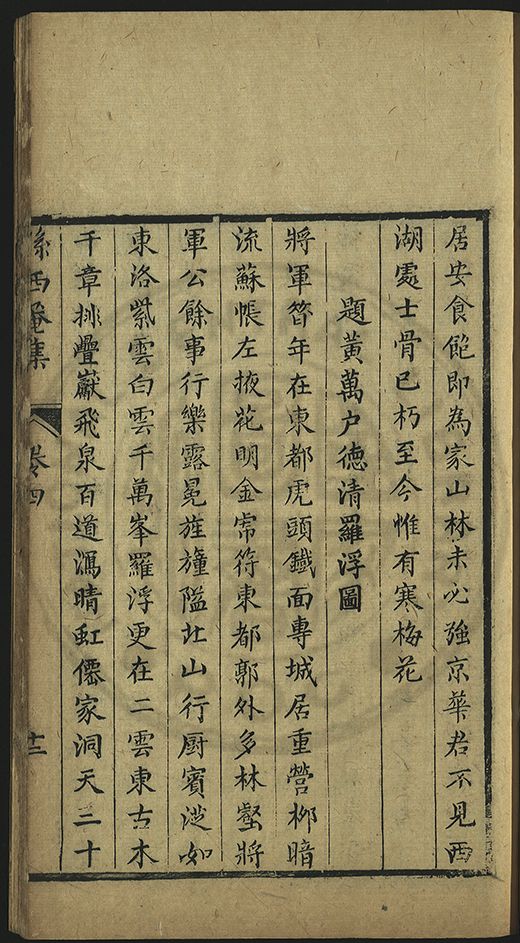 居安食飽即為家山林未必強京華君不見西
湖處士骨已朽至今惟有寒梅花
題黃萬户德清羅浮圖
將軍昝年在東都虎頭鐵面專城居重營栁暗
流蘇帳左掖花明金虎符東都郭外多林壑將
軍公餘事行樂露冕旌旜隘北山行厨賓從如
東洛紫雲白雲千萬峯羅浮更在二雲東古木
千章排疊巘飛泉百道瀉晴虹僊家洞天三十
西菴集 卷四 十二